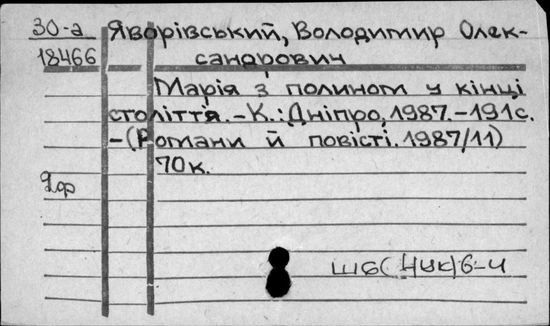 30-а Яворівський, Володимир Олек-
18466 сандрович
Марія з полином у кінці
століття. – К.: Дніпро, 1987. – 191с.
– (Романи й повісті. 1987/11)
70к.
2ф
ШБ(НУК)6-4